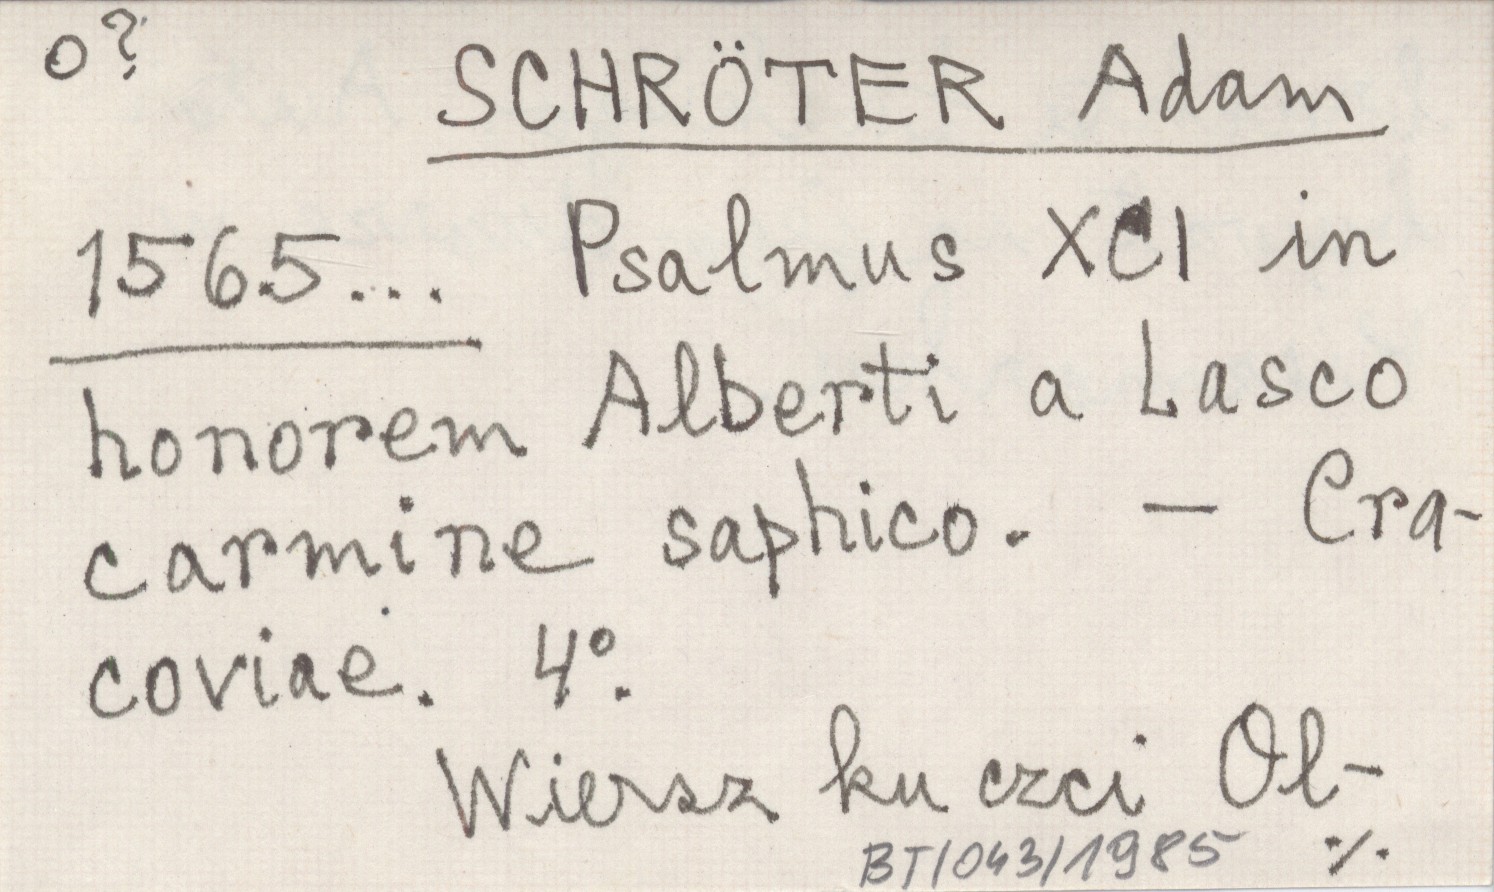 o?
SCHRÖTER Adam
1565... Psalmus XCI in
honorem Alberti a Lasco
carmine saphico. – Cra-
coviae. 4°.
Wiersz ku czci Ol-
BT/043/1985 ·/.